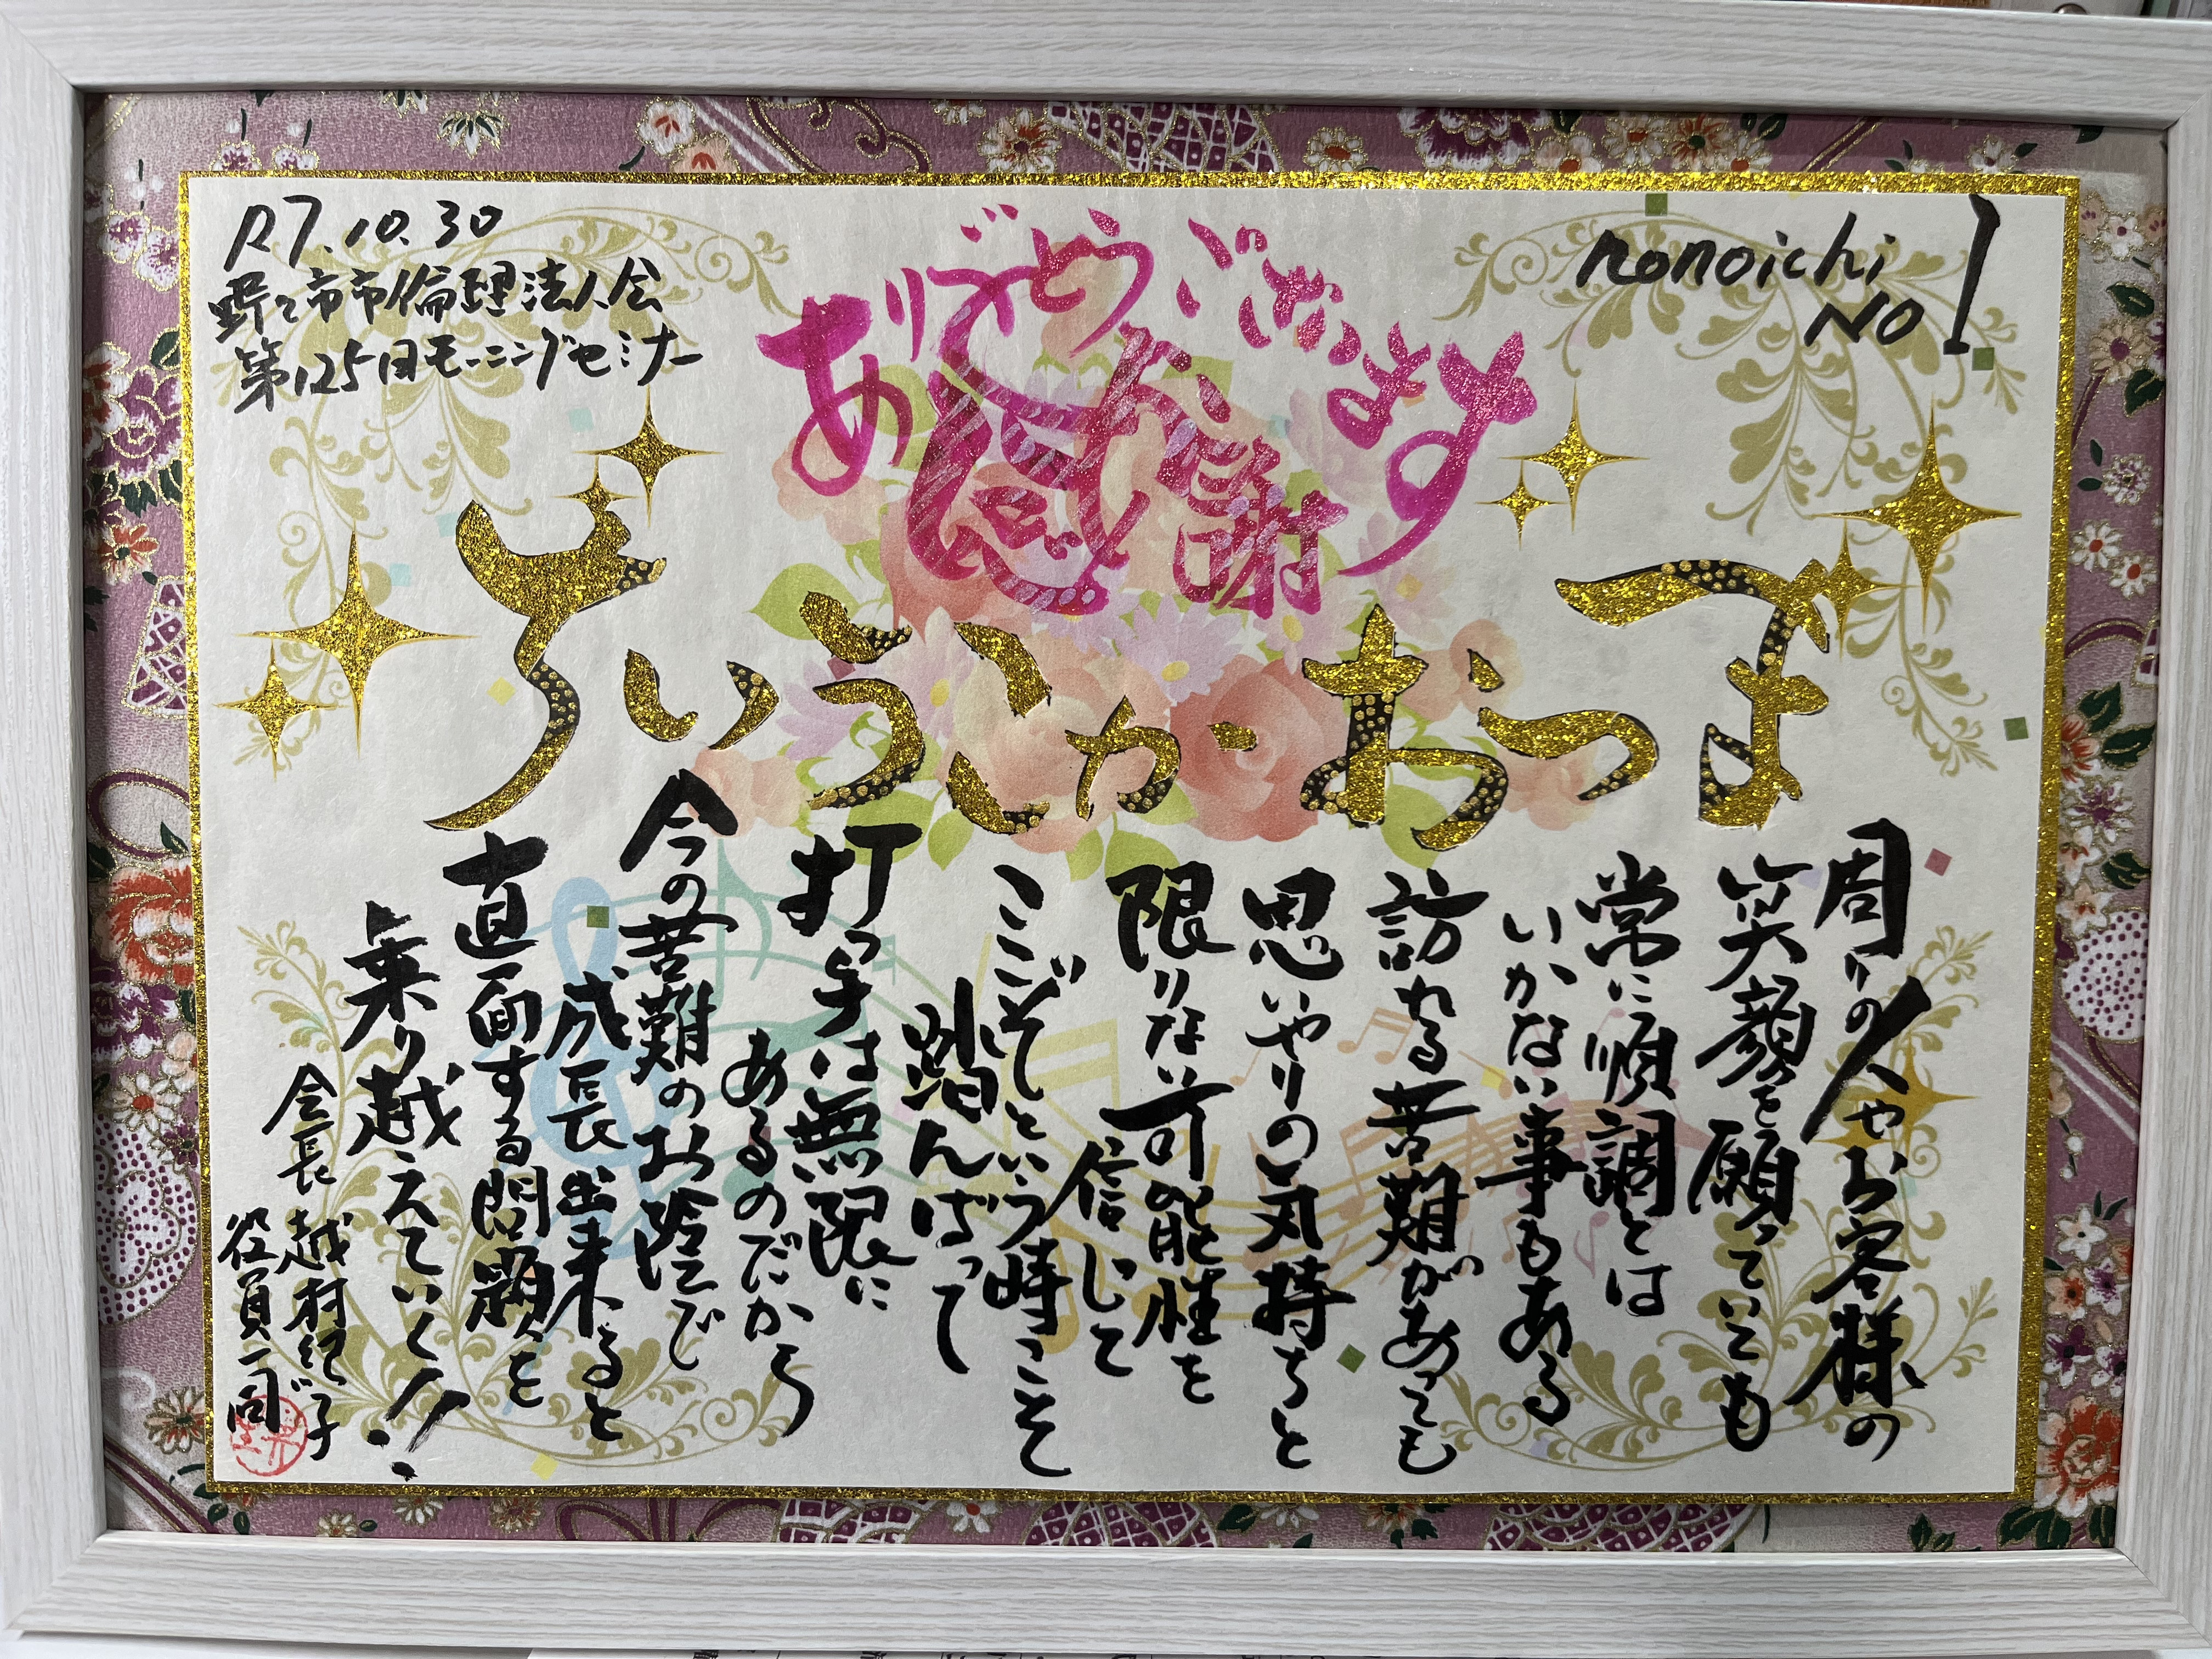 R7.10.30
野々市市倫理法人会
第125回モーニングセミナー
ありがとうございます
感謝
nonoichi
NO1
まつおかこういち
周りの人やお客様の
笑顔を願っていても
常に順調とは
いかない事もある
訪れる苦難があっても
思いやりの気持ちと
限りない可能性を
信じて
ここぞという時こそ
踏んばって
打つ手は無限に
あるのだから
今の苦難のお陰で
成長出来ると
直面する問題を
乗り越えていく!!
会長 越村
役員一同